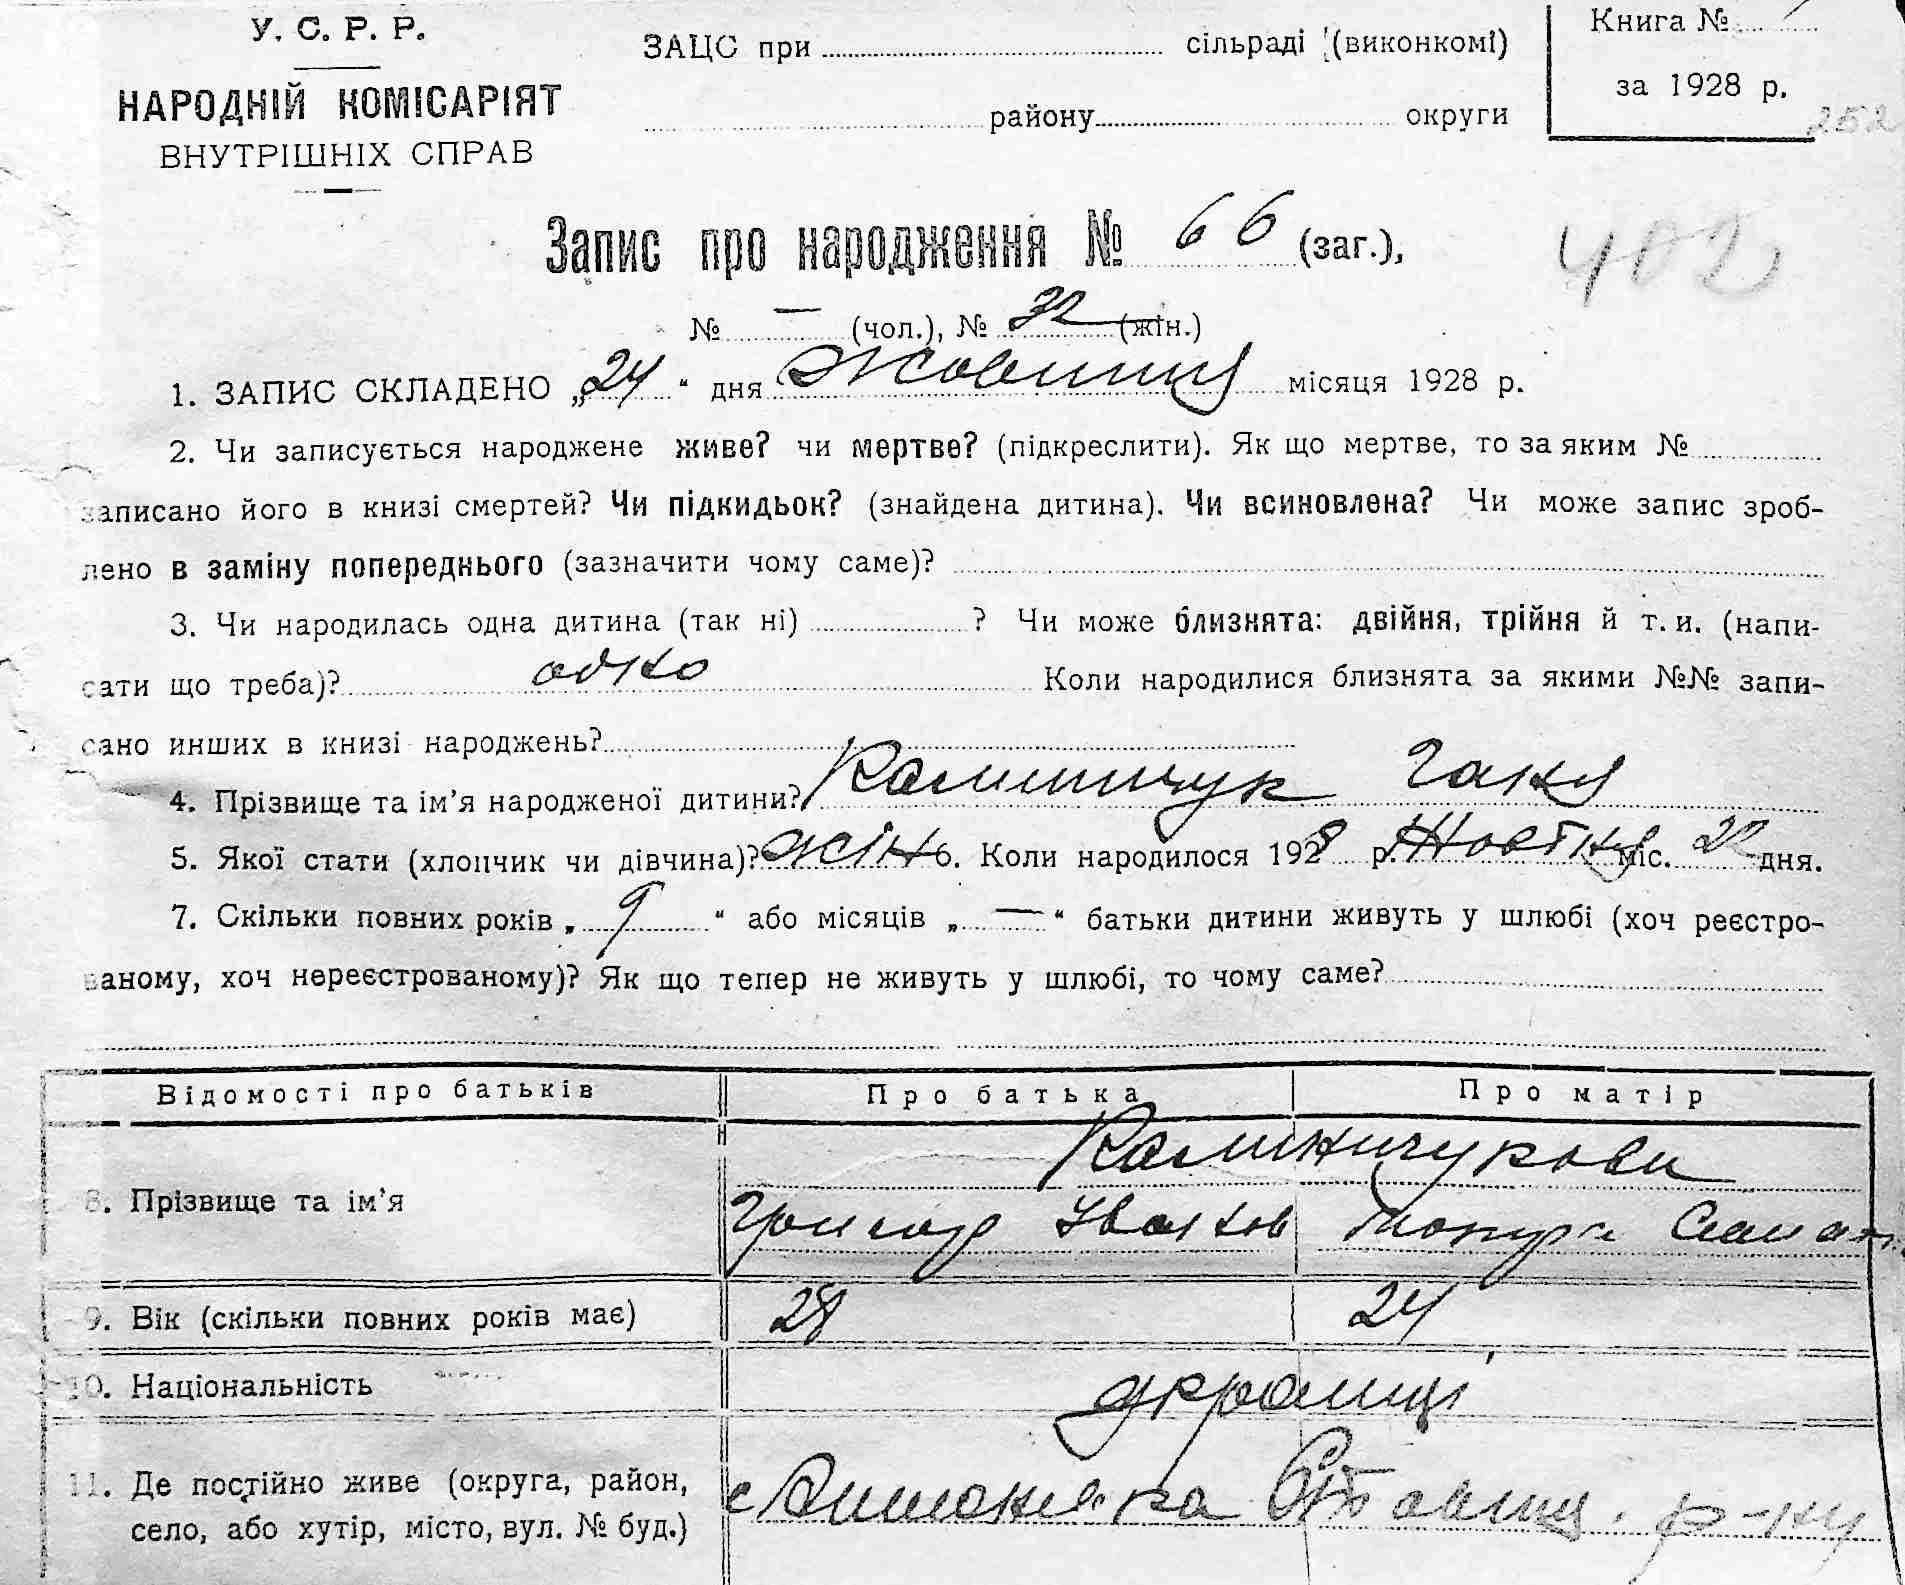 У. С. Р. Р.
НАРОДНІЙ КОМІСАРІЯТ
ВНУТРІШНІХ СПРАВ
ЗАЦС при сільраді (виконкомі)
району округи
Книга №
за 1928 р.
252
Запис про народження № 66 (заг.),
402
№ — (чол.), № 32 (жін.)
1. ЗАПИС СКЛАДЕНО „24“ дня Жовтня місяця 1928 р.
2. Чи записується народжене живе? чи мертве? (підкреслити). Як що мертве, то за яким №
записано його в книзі смертей? Чи підкидьок? (знайдена дитина). Чи всиновлена? Чи може запис зроб-
лено в заміну попереднього (зазначити чому саме)?
3. Чи народилась одна дитина (так ні) ? Чи може близнята: двійня, трійня й т. и. (напи-
сати що треба)? одно Коли народилися близнята за якими №№ запи-
сано инших в книзі народжень?
4. Прізвище та ім’я народженої дитини? Калинчук Ганя
5. Якої статі (хлопчик чи дівчина)? жін 6. Коли народилося 1928 р. Жовтня міс. 22 дня.
7. Скільки повних років „ 9 “ або місяців „ — “ батьки дитини живуть у шлюбі (хоч реєстро-
ваному, хоч нереєстрованому)? Як що тепер не живуть у шлюбі, то чому саме?
Відомості про батьків Про батька Про матір
Калинчукови
8. Прізвище та ім’я Григор Іванов
9. Вік (скільки повних років має) 28 24
10. Національність українці
11. Де постійно живе (округа, район, с
село, або хутір, місто, вул. № буд.) р-ну